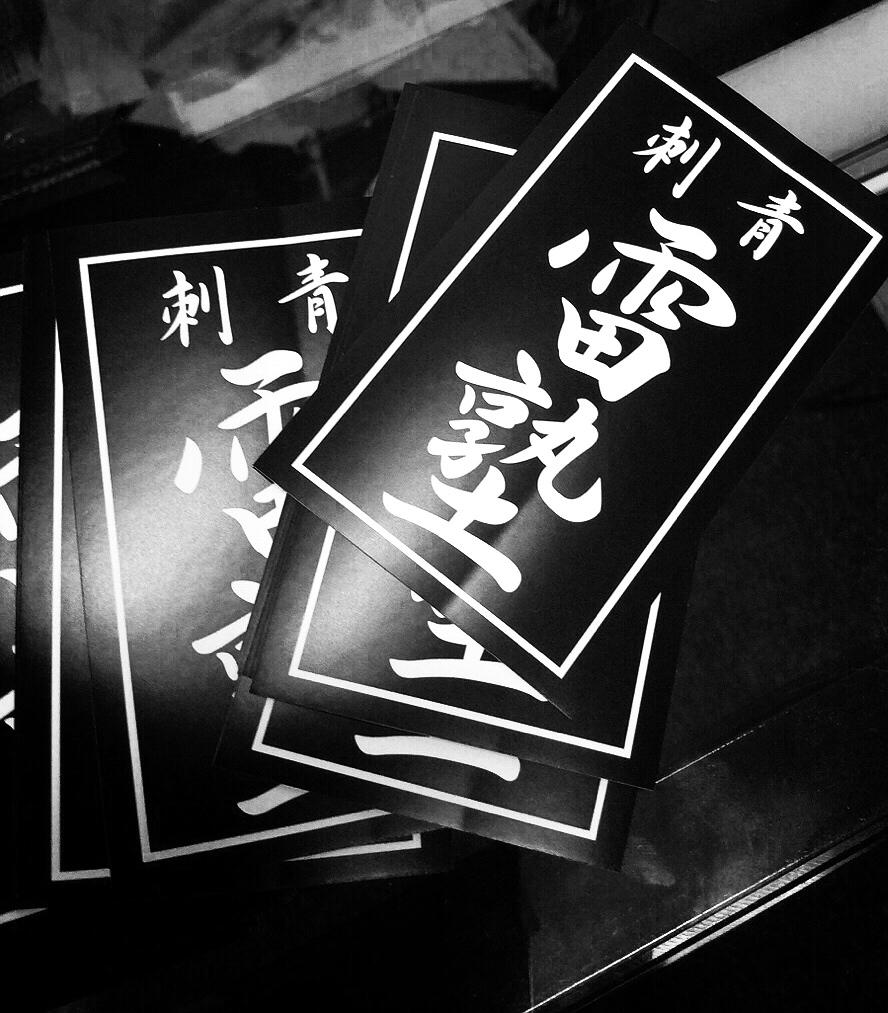 刺青
雷塾
刺青
雷